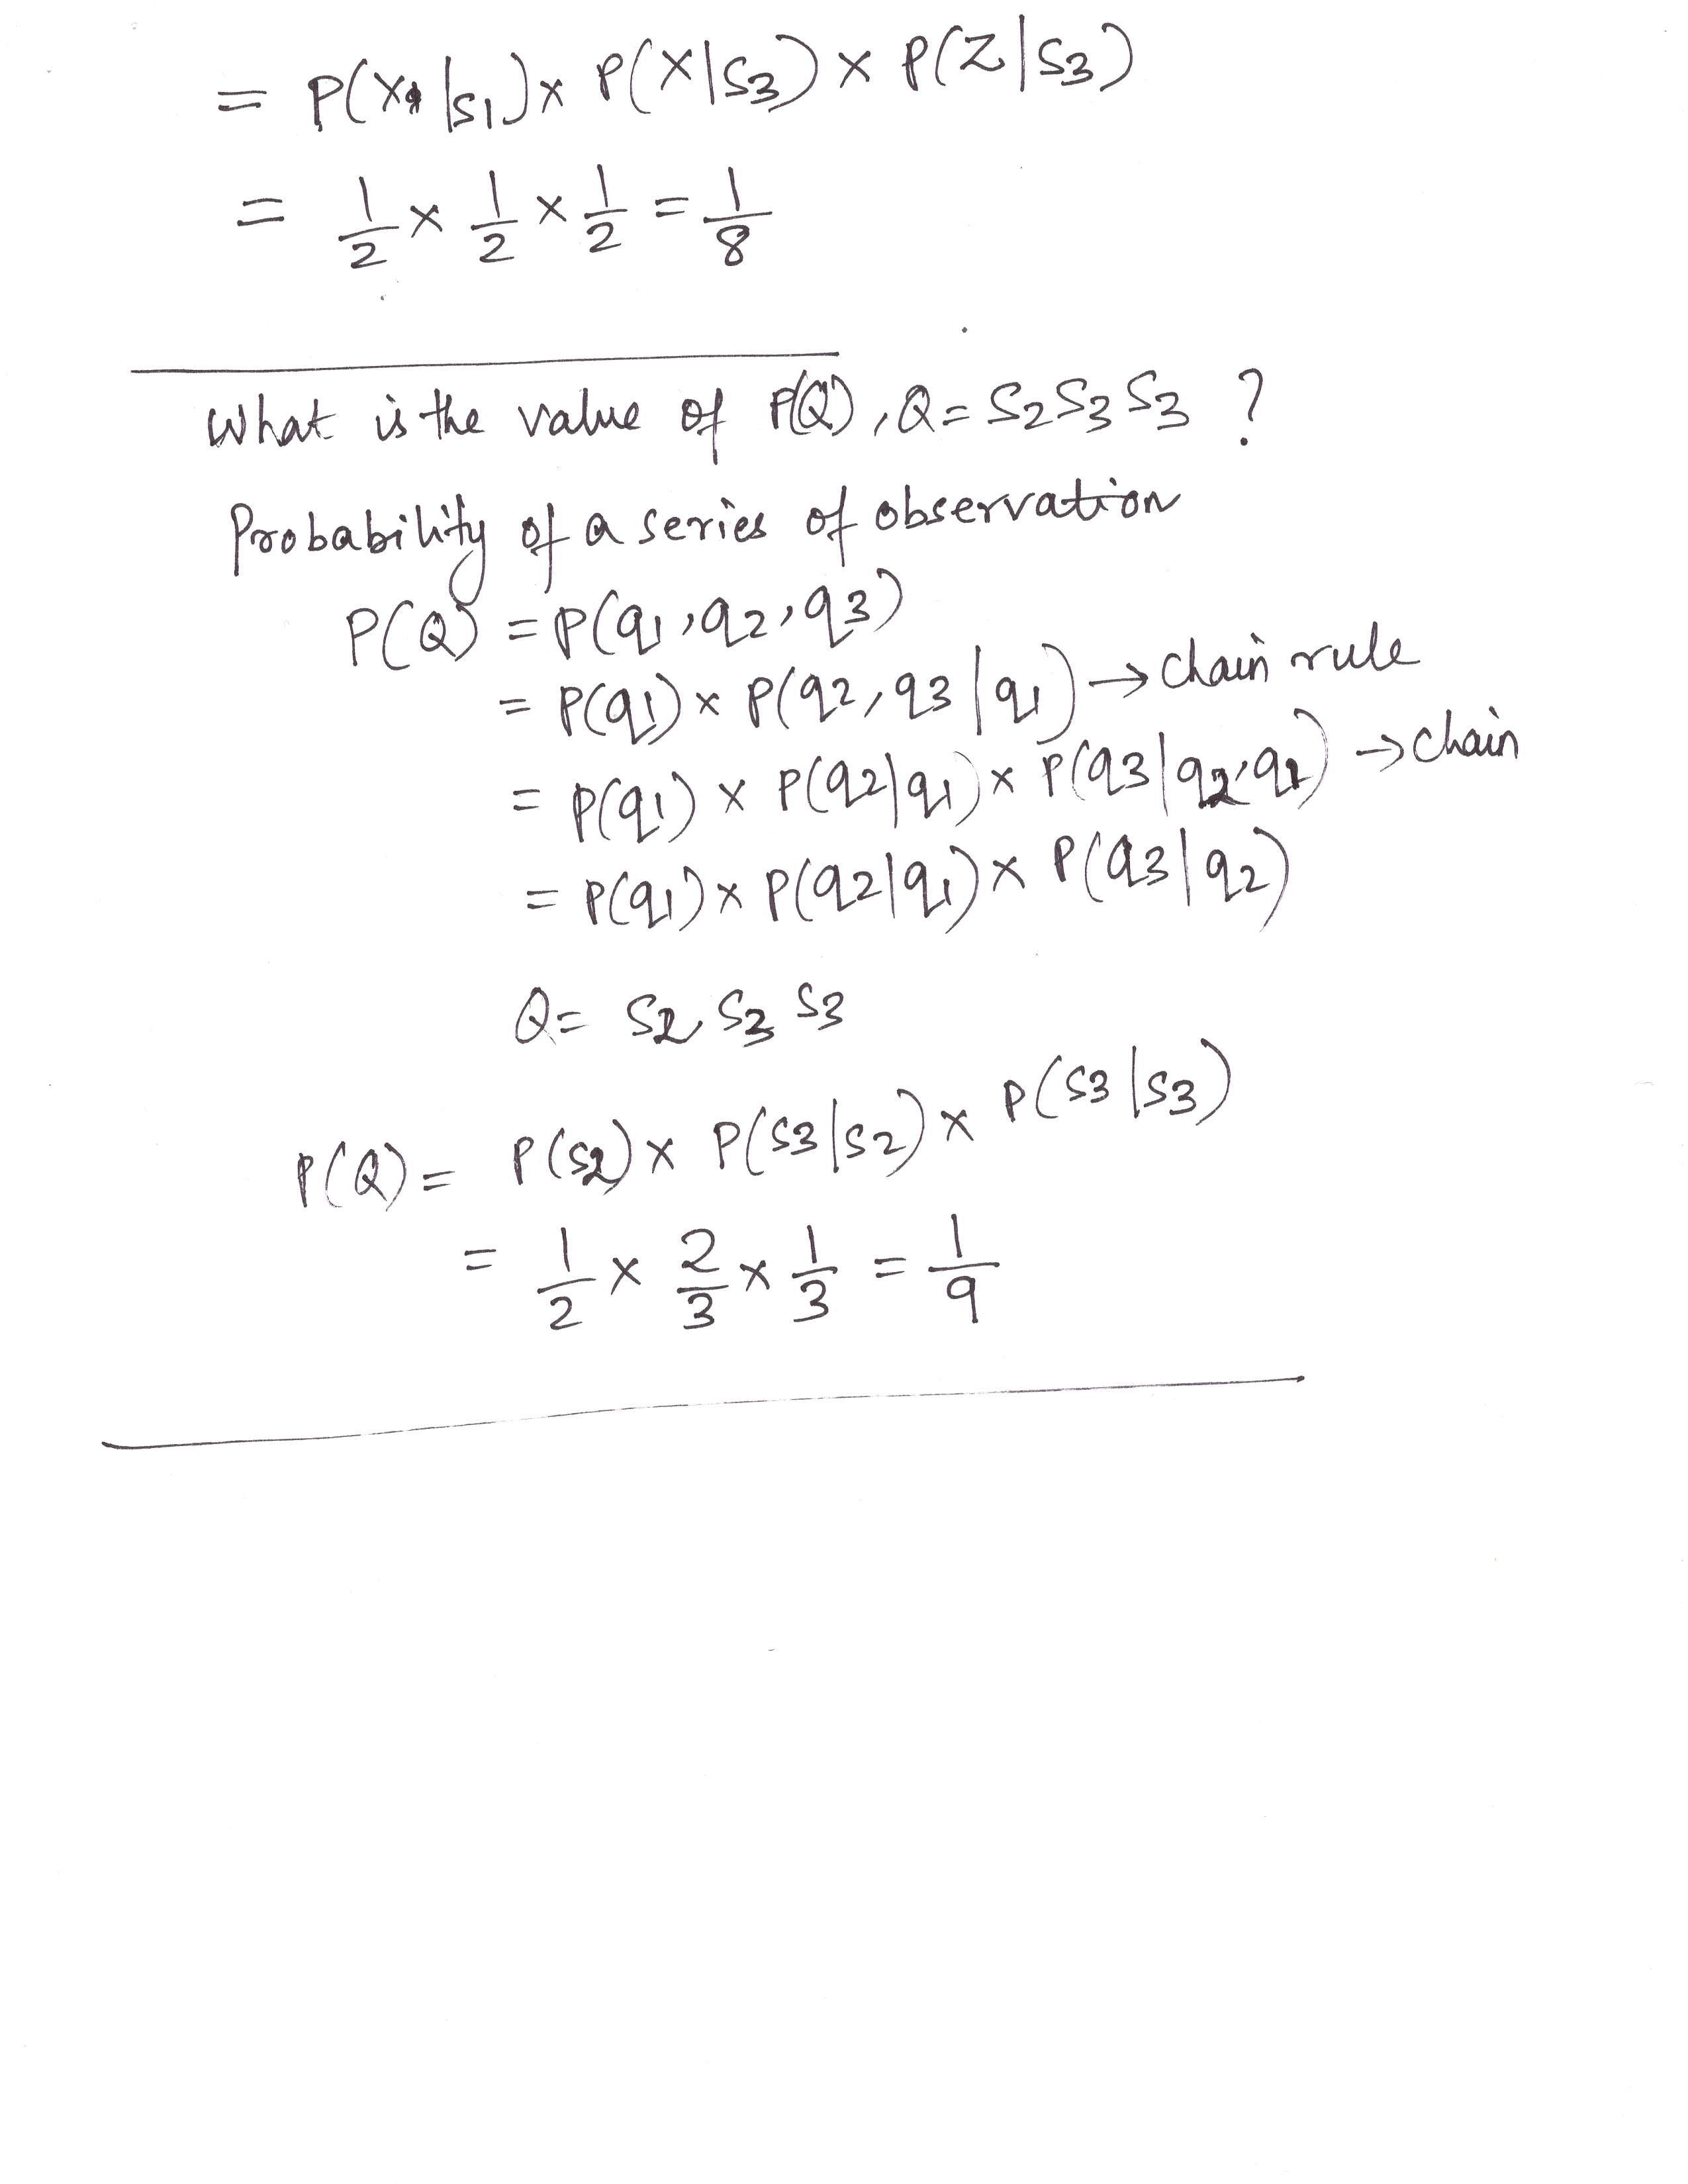 = P(X|s1) x P(X|S3) x P(Z|S3)
= 1/2 x 1/2 x 1/2 = 1/8
What is the value of P(Q), Q = S2 S3 S3 ?
Probability of a series of observation
P(Q) = P(q1, q2, q3)
= P(q1) x P(q2, q3 | q1) → chain rule
= P(q1) x P(q2|q1) x P(q3|q2, q1) → chain
= P(q1) x P(q2|q1) x P(q3|q2)
Q = S2 S3 S3
P(Q) = P(s2) x P(s3|s2) x P(s3|s3)
= 1/2 x 2/3 x 1/3 = 1/9